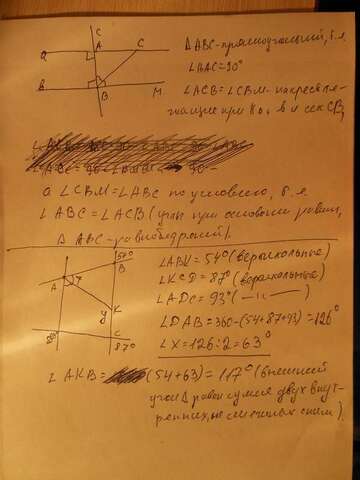 c
a A C
L
B B M
ΔABC-прямоугольный, т.к.
∠BAC=90°
∠ACB=∠CBM-накрест ле-
жащие при а||в и сек CB,
а ∠CBM=∠ABC по условию, т.е.
∠ABC=∠ACB (углы при основании равны,
ΔABC-равнобедренный).
54°
B
A x
y K
C
87°
∠ABK=54° (вертикальные)
∠KCD=87° (вертикальные)
∠ADC=93° (—„—)
∠DAB=360-(54+87+93)=126°
∠X=126:2=63°
∠AKB= (54+63)=117° (внешний
угол Δ равен сумме двух внут-
ренних, не смежных с ним).